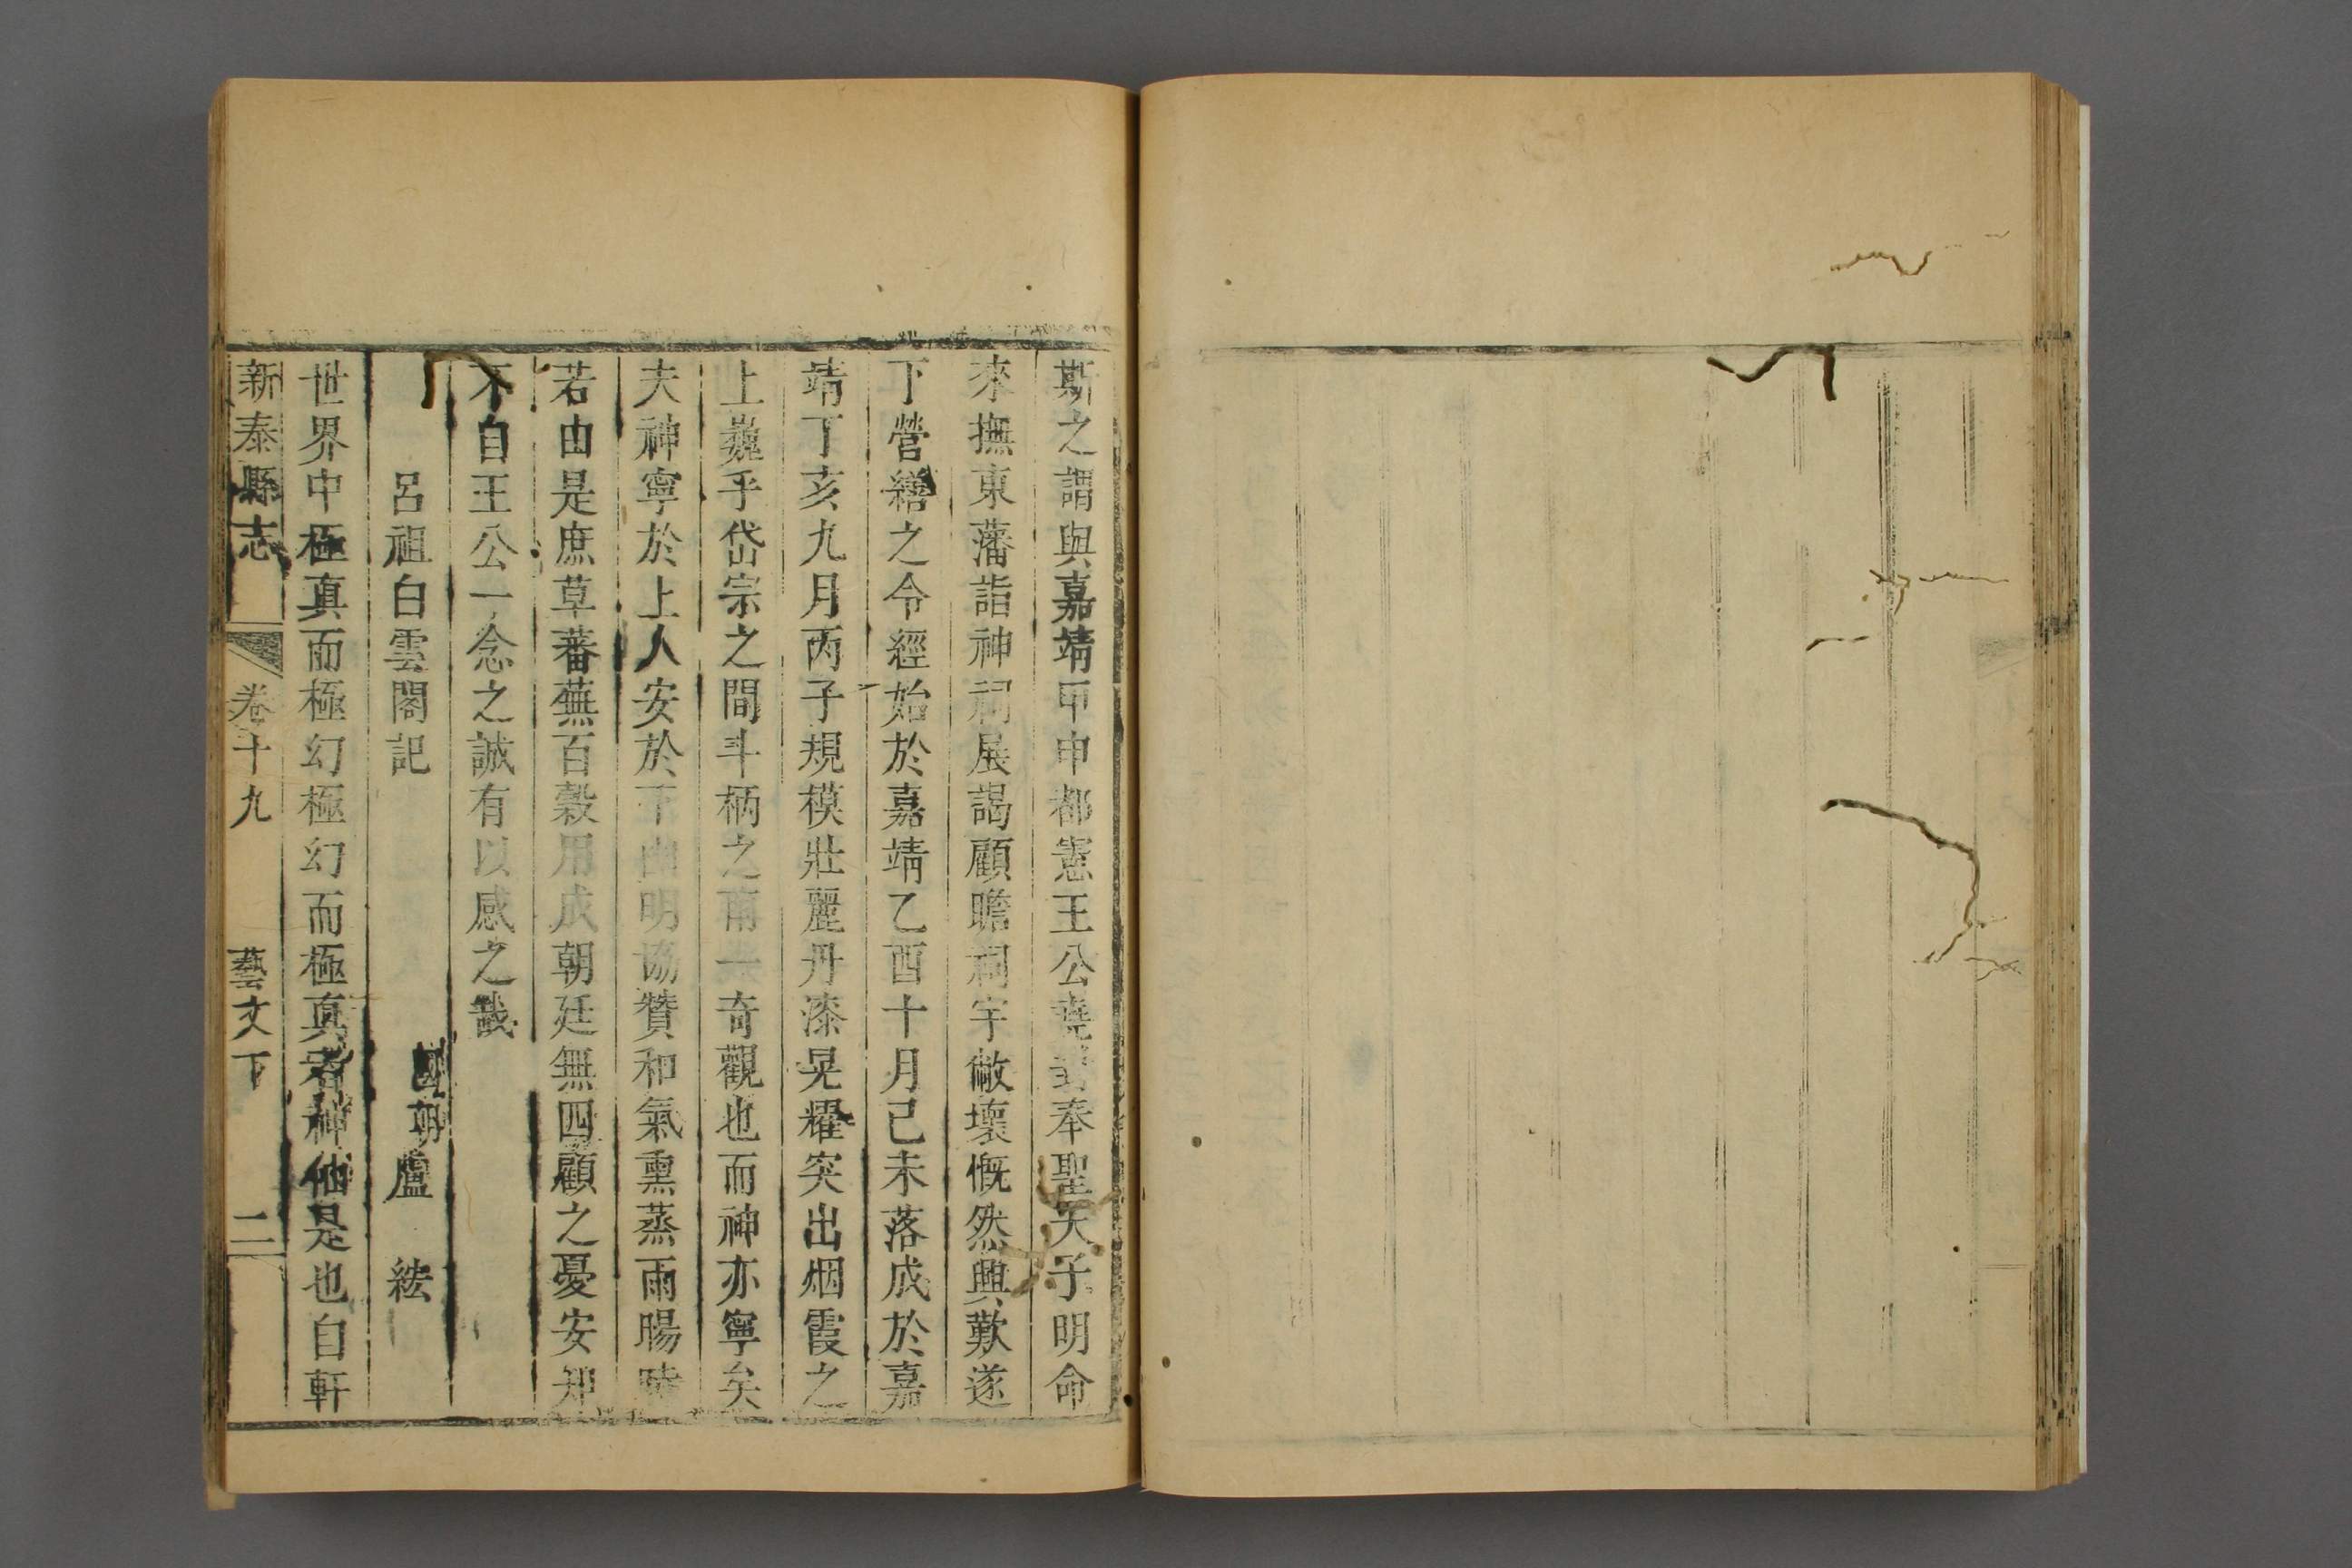 斯之謂與嘉靖甲申都憲王公堯封奉聖天子明命
來撫東藩詣神祠展謁顧瞻祠宇敝壞慨然興歎遂
下營繕之令經始於嘉靖乙酉十月己未落成於嘉
靖丁亥九月丙子規模壯麗丹漆晃耀突出烟霞之
上巍乎岱宗之間斗柄之南一奇觀也而神亦寧矣
夫神寧於上人安於下幽明協贊和氣熏蒸雨暘時
若由是庶草蕃蕪百穀用成朝廷無四顧之憂安知
不自王公一念之誠有以感之哉
呂祖白雲閣記
國朝盧 綋
世界中極真而極幻極幻而極真者神仙是也自軒
新泰縣志 卷十九 藝文下 二